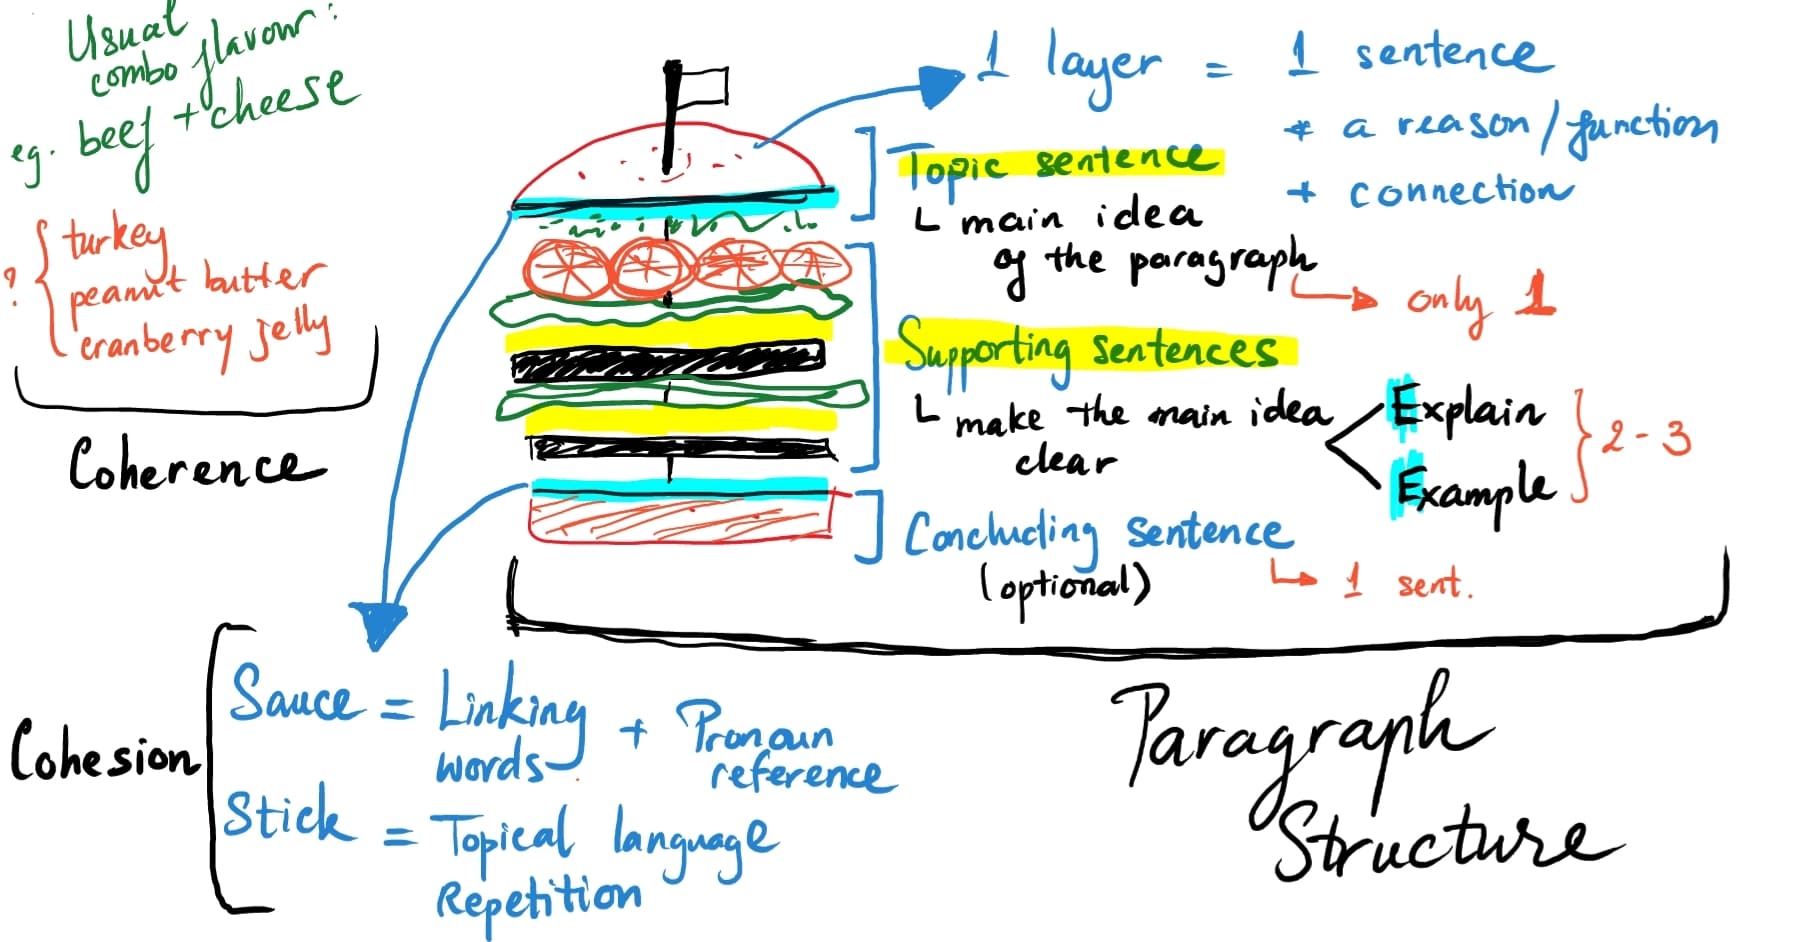 Usual
combo flavour:
eg. beef + cheese
? { turkey
peanut butter
cranberry jelly
Coherence
1 layer = 1 sentence
* a reason / function
+ connection
Topic sentence
main idea
of the paragraph
only 1
Supporting sentences
make the main idea
clear
Explain
Example
2 - 3
Concluding sentence
(optional)
1 sent.
Cohesion
Sauce = Linking
words
+ Pronoun
reference
Stick = Topical language
Repetition
Paragraph
Structure